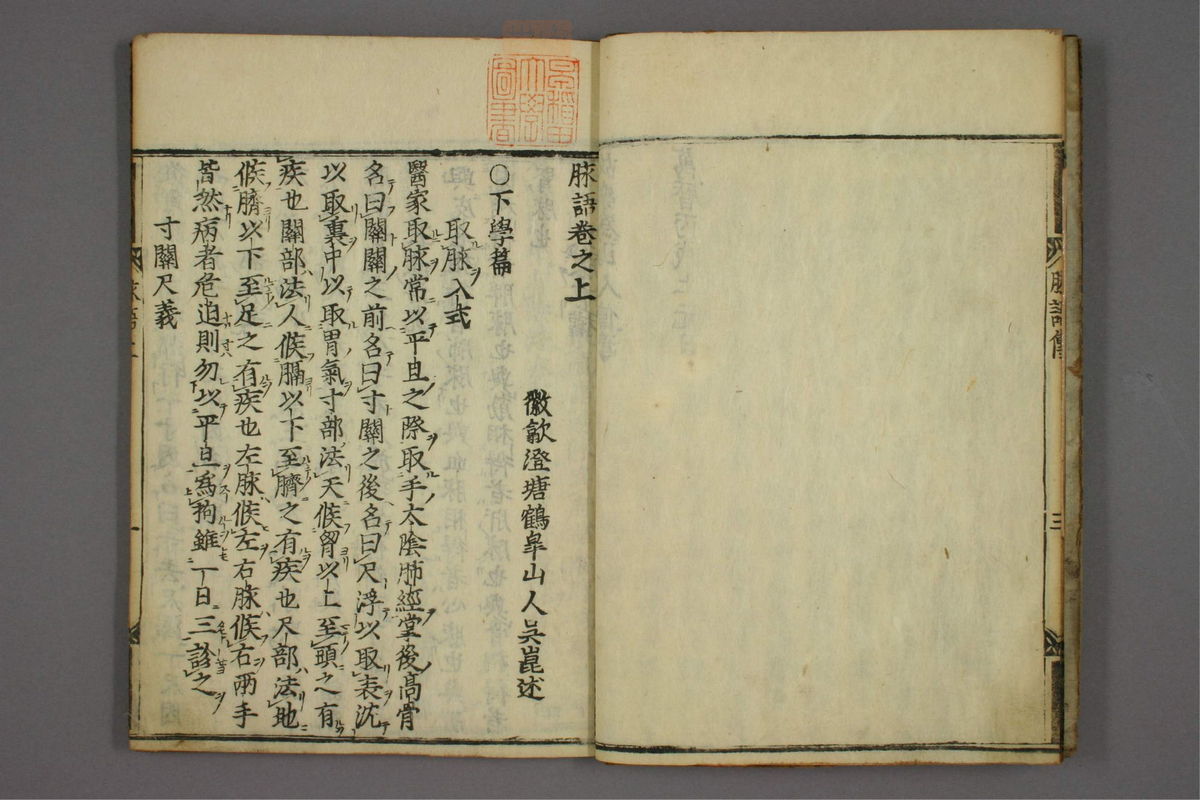 脉語卷之上
徽歙澄塘鶴皐山人吳崑述
○下學篇
取脉入式
醫家取脉常以平旦之際取手太陰肺經掌後高骨
名曰關關之前名曰寸關之後名曰尺浮以取表沈
以取裏中以取胃氣寸部法天候胷以上至頭之有
疾也關部法人候膈以下至臍之有疾也尺部法地
候臍以下至足之有疾也左脉候左右脉候右兩手
皆然病者危迫則勿以平旦爲拘雖一日三診之
寸關尺義